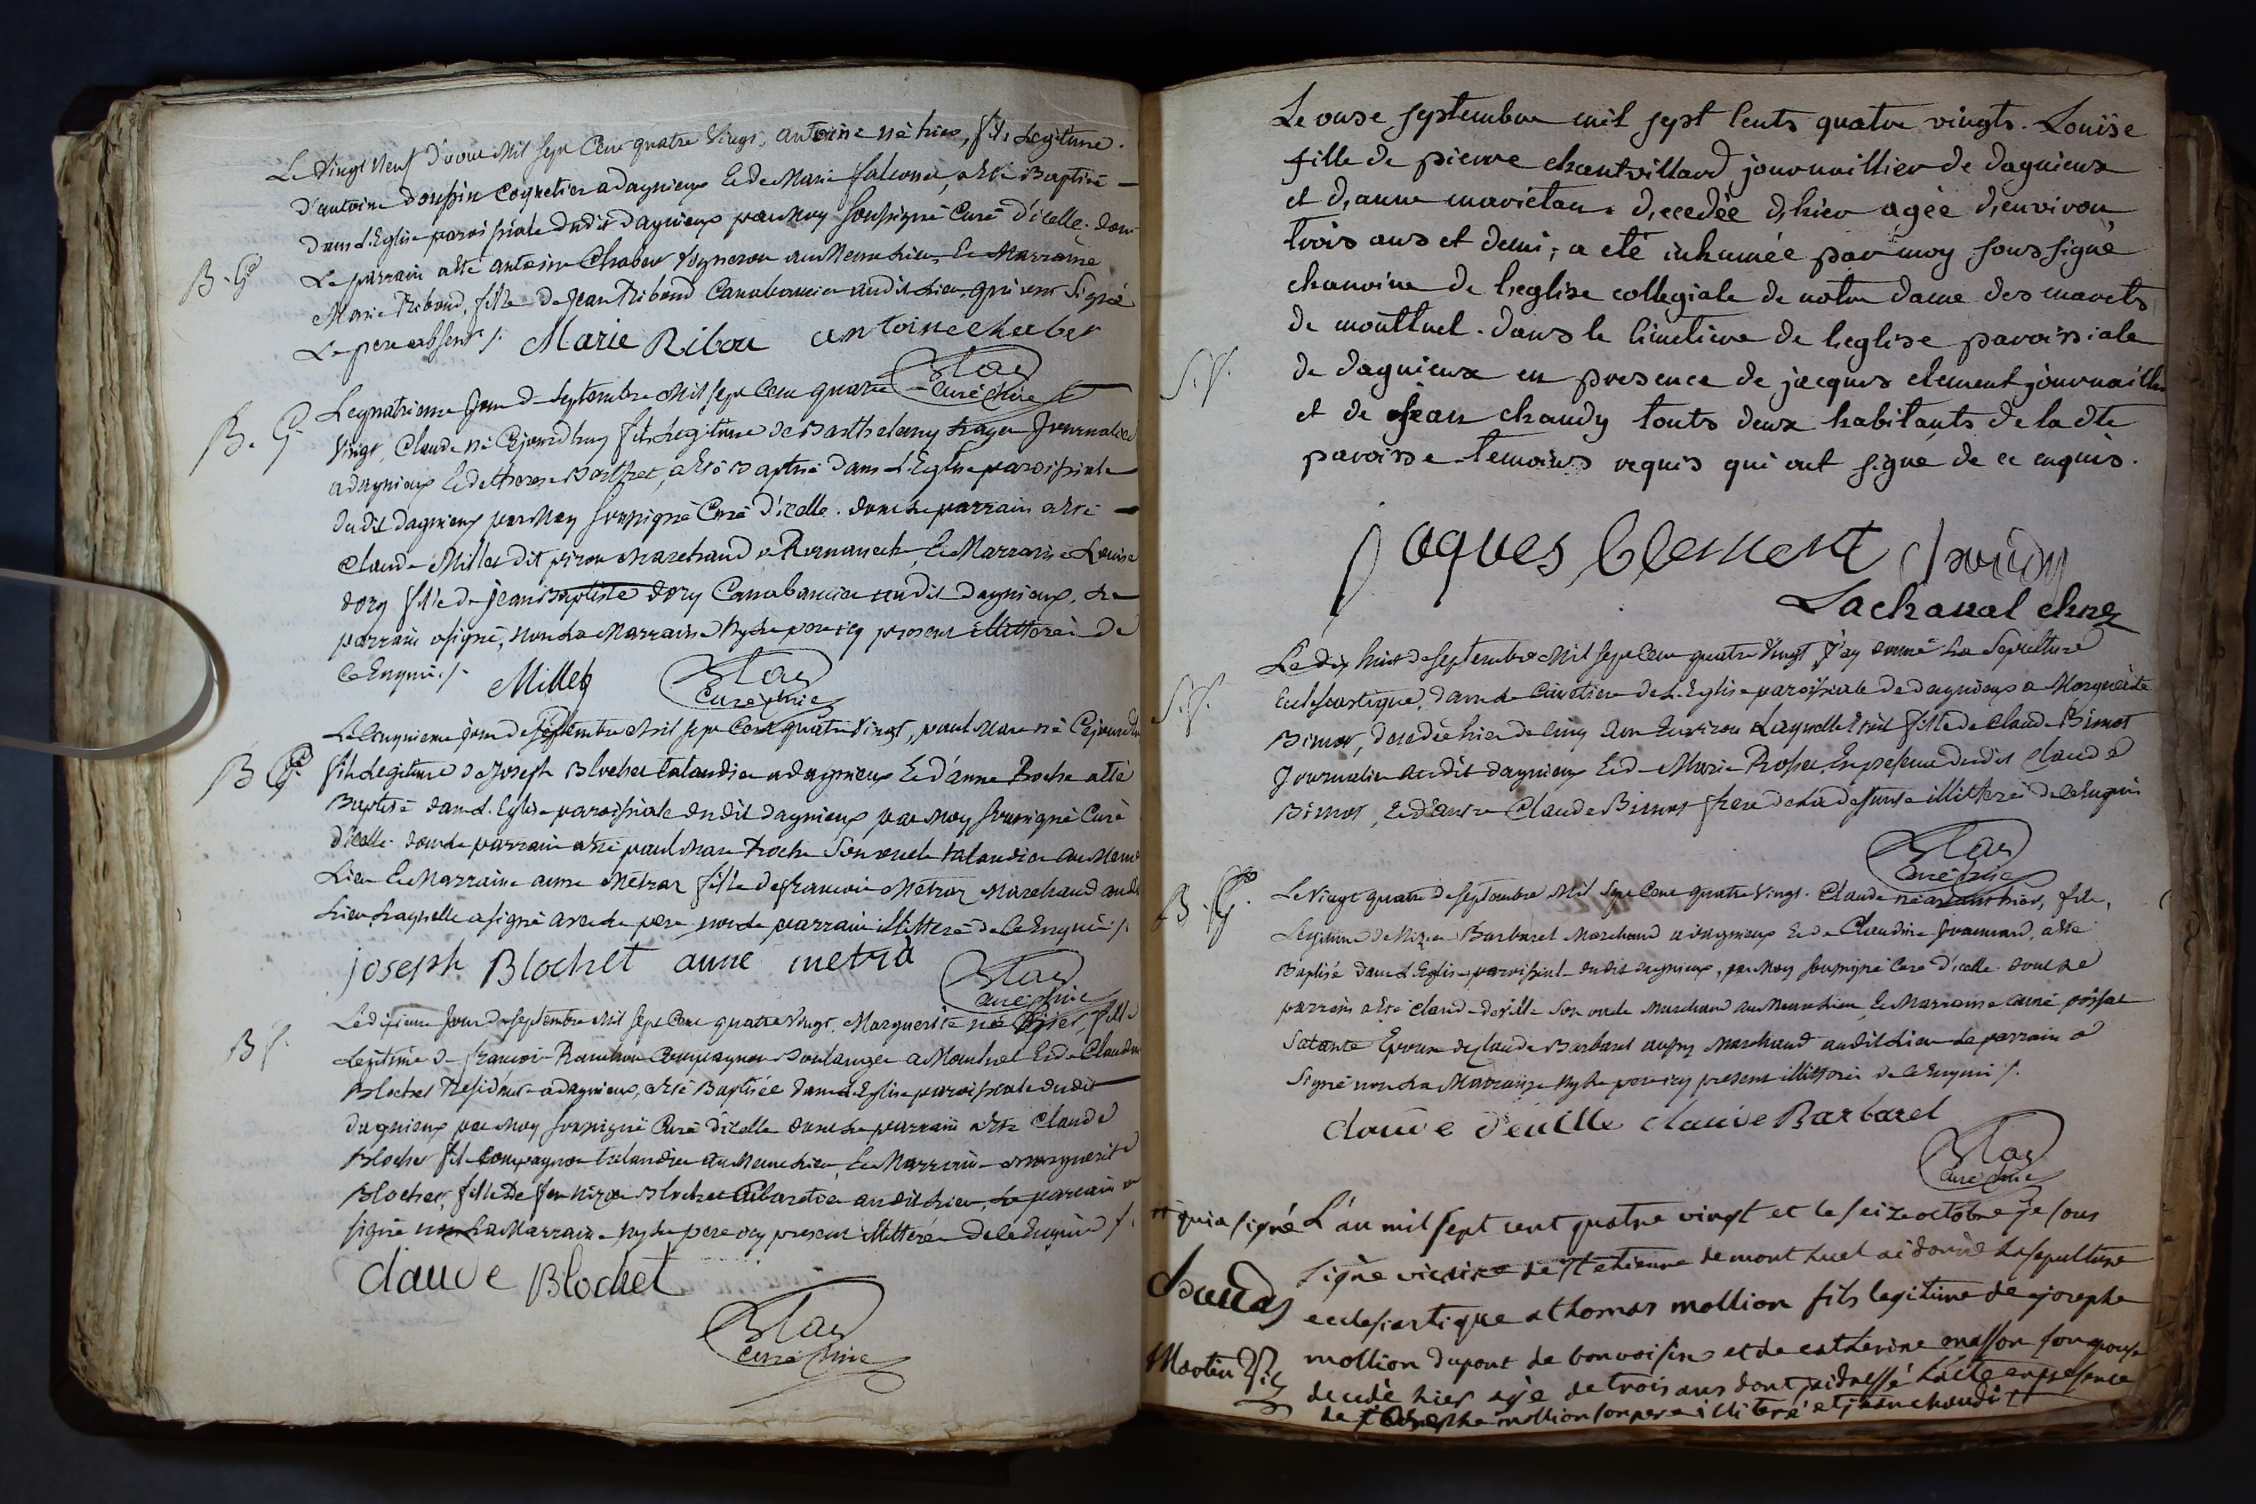 Le vingt neuf d'aout Mil sept Cent quatre vingt, antoine né hier, fils Legitime
d'antoine Coquetier a dagnieux Et de Marie falconet, a Eté Baptisé
dans L'Eglise paroissiale dudit dagnieux par Moy soussigné Curé d'icelle. dont
B. G
Le parrain a Eté antoine Chaber Vigneron au Meme Lieu, Et Marraine
Marie Riboud, fille de Jean Riboud Canabassier audit Lieu, qui ont signé
Le pere absent /.
Marie Ribou antoine chaber
Blay
Curé
B. G.
Le quatrieme jour de septembre Mil sept Cent quatre
Vingt, Claude né Cejourdhuy fils Legitime de Barthelemy Journalier
a dagnieux Et de therese, a Eté Baptisé dans L'Eglise paroissiale
dudit dagnieux par Moy soussigné Curé d'icelle. dont Le parrain a Eté
Claude Millet dit Marchand a Romaneche, Et Marraine Louise
dory fille de jean Baptiste dory Canabassier audit dagnieux, Le
parrain a signé, non La Marraine Ny Le pere icy present illitterés de
Ce Enquis /.
Millet
Blay
Curé
Le Cinquieme jour de septembre Mil sept Cent quatre Vingt, paul Marc né Cejourdhuy
B G
fils Legitime de Joseph Blochet talandier a dagnieux Et d'anne Roche a Eté
Baptisé dans L'Eglise paroissiale dudit dagnieux par Moy soussigné Curé
d'icelle. dont Le parrain a Eté paul Marc Roche Son oncle talandier au Meme
Lieu Et Marraine anne Metraz fille de francois Metraz Marchand audit
Lieu Laquelle a signé avec Le pere non Le parrain illitteré de Ce Enquis /.
joseph Blochet anne metra
Blay
Curé
B f.
Le dixieme jour de septembre Mil sept Cent quatre Vingt, Marguerite née hier, fille
Legitime de francois Compagnon Boulanger a Montluel Et de Claudine
Blochet Residente a dagnieux, a Eté Baptisée dans L'Eglise paroissiale dudit
dagnieux par Moy soussigné Curé d'icelle dont Le parrain a Eté Claude
Blochet fils Compagnon talandier au Meme Lieu, Et Marraine Marguerite
Blochet, fille De feu Blochet Cabaretier audit Lieu, Le parrain a
signé non La Marraine Ny Le pere icy present illitterés de Ce Enquis /.
claude Blochet
Blay
Curé
Le onse septembre mil sept cents quatre vingts. Louïse
fille de pierre chantvillard journaillier de dagnieux
et d,anne mariétan. d,ecedée d,hier agée d,environ
trois ans et demi; a eté inhumée par moy sous signé
chanoine de l,eglise collegiale de notre dame des marets
de montluel. dans le cimetiere de l,eglise paroissiale
S. f.
de dagnieux en presence de jacques clement journaillier
et de jean chaudy touts deux habitants de la dte
paroisse temoins requis qui ont signé de ce enquis.
jaques Clement chaudy
Lachanal chne
Le dix huit de septembre Mil sept Cent quatre Vingt J'ay donné La Sepulture
S. f.
Ecclesiastique, dans Le Cimetiere de L'Eglise paroissiale de dagnieux a Marguerite
Bimot, decedée hier de Cinq ans Environ Laquelle Etoit fille de Claude Bimot
Journalier audit dagnieux Et de Marie, En presence dudit Claude
Bimot, Et d'autre Claude Bimot frere de La defunte illitterés de Ce Enquis
Blay
Curé
B. G.
Le Vingt quatre de septembre Mil Sept Cent quatre Vingt. Claude né avant hier, fils
Legitime de Barbaret Marchand a dagnieux Et de Claudine, a Eté
Baptisé dans L'Eglise paroissiale dudit dagnieux, par Moy soussigné Curé d'icelle dont Le
parrain a Eté Claude deville Son oncle Marchand au Meme Lieu Et Marraine
Sa tante Epouse de Claude Barbaret aussy Marchand audit Lieu Le parrain a
Signé non La Marraine Ny Le pere icy present illitterés de Ce Enquis /.
claude deville claude Barbaret
Blay
Curé
qui a signé
L'an mil sept cent quatre vingt et le seize octobre je sous
signé vicaire de st etienne de mont luel ai donné la sepulture
chaudy
ecclesiastique a thomas mollion fils legitime de josephe
mollion dupont de bonvoisin et de catherine masson son epouse
Martin vic
decedé hier agé de trois ans dont j'ai dressé l'acte en presence
de josephe mollion son pere illiteré et jean chaudi